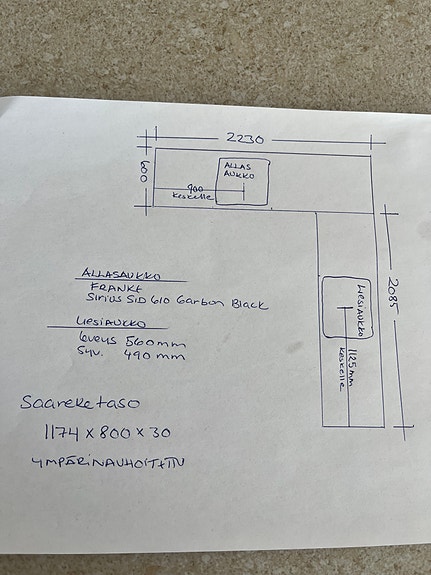 2230
600
ALLAS
AUKKO
900
Keskelle
2085
LIESIAUKKO
1125mm
Keskelle
ALLASAUKKO
FRANKE
Sirius SID 610 Carbon Black
LIESIAUKKO
leveys 560mm
Syv. 490 mm
Saareketaso
1174 x 800 x 30
YMPÄRINAUHOITETTU